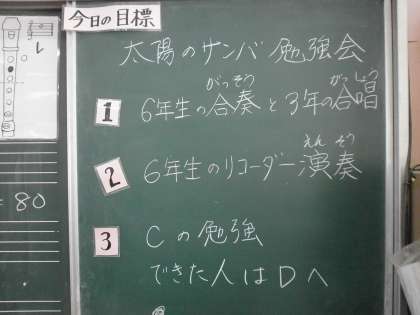 今日の目標
太陽のサンバ勉強会
1 6年生の合奏と3年の合唱
がっそう がっしょう
2 6年生のリコーダー演奏
えんそう
3 Cの勉強
できた人はDへ
= 80